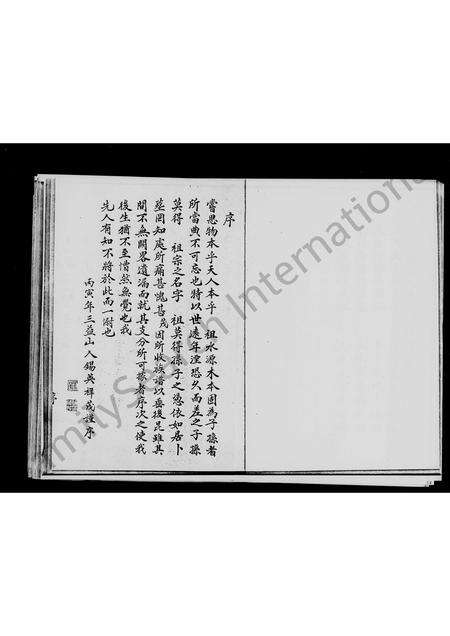 序
嘗思物本乎天人本乎 祖水源木本固為子孫者
所當典不可忘也特以世遠年湮恐久而差之子孫
莫得 祖宗之名字 祖莫得孫子之憑依如居卜
墓罔知處所痛甚愧甚茂因所收族譜以垂後昆雖其
間不無闕畧遺漏而就其支分所可敬者序次之使我
後生猶不至懵然無覺也我
先人有知不將於此而一慰也
丙寅年三益山人錫英祥茂謹序
序
FamilySearch International